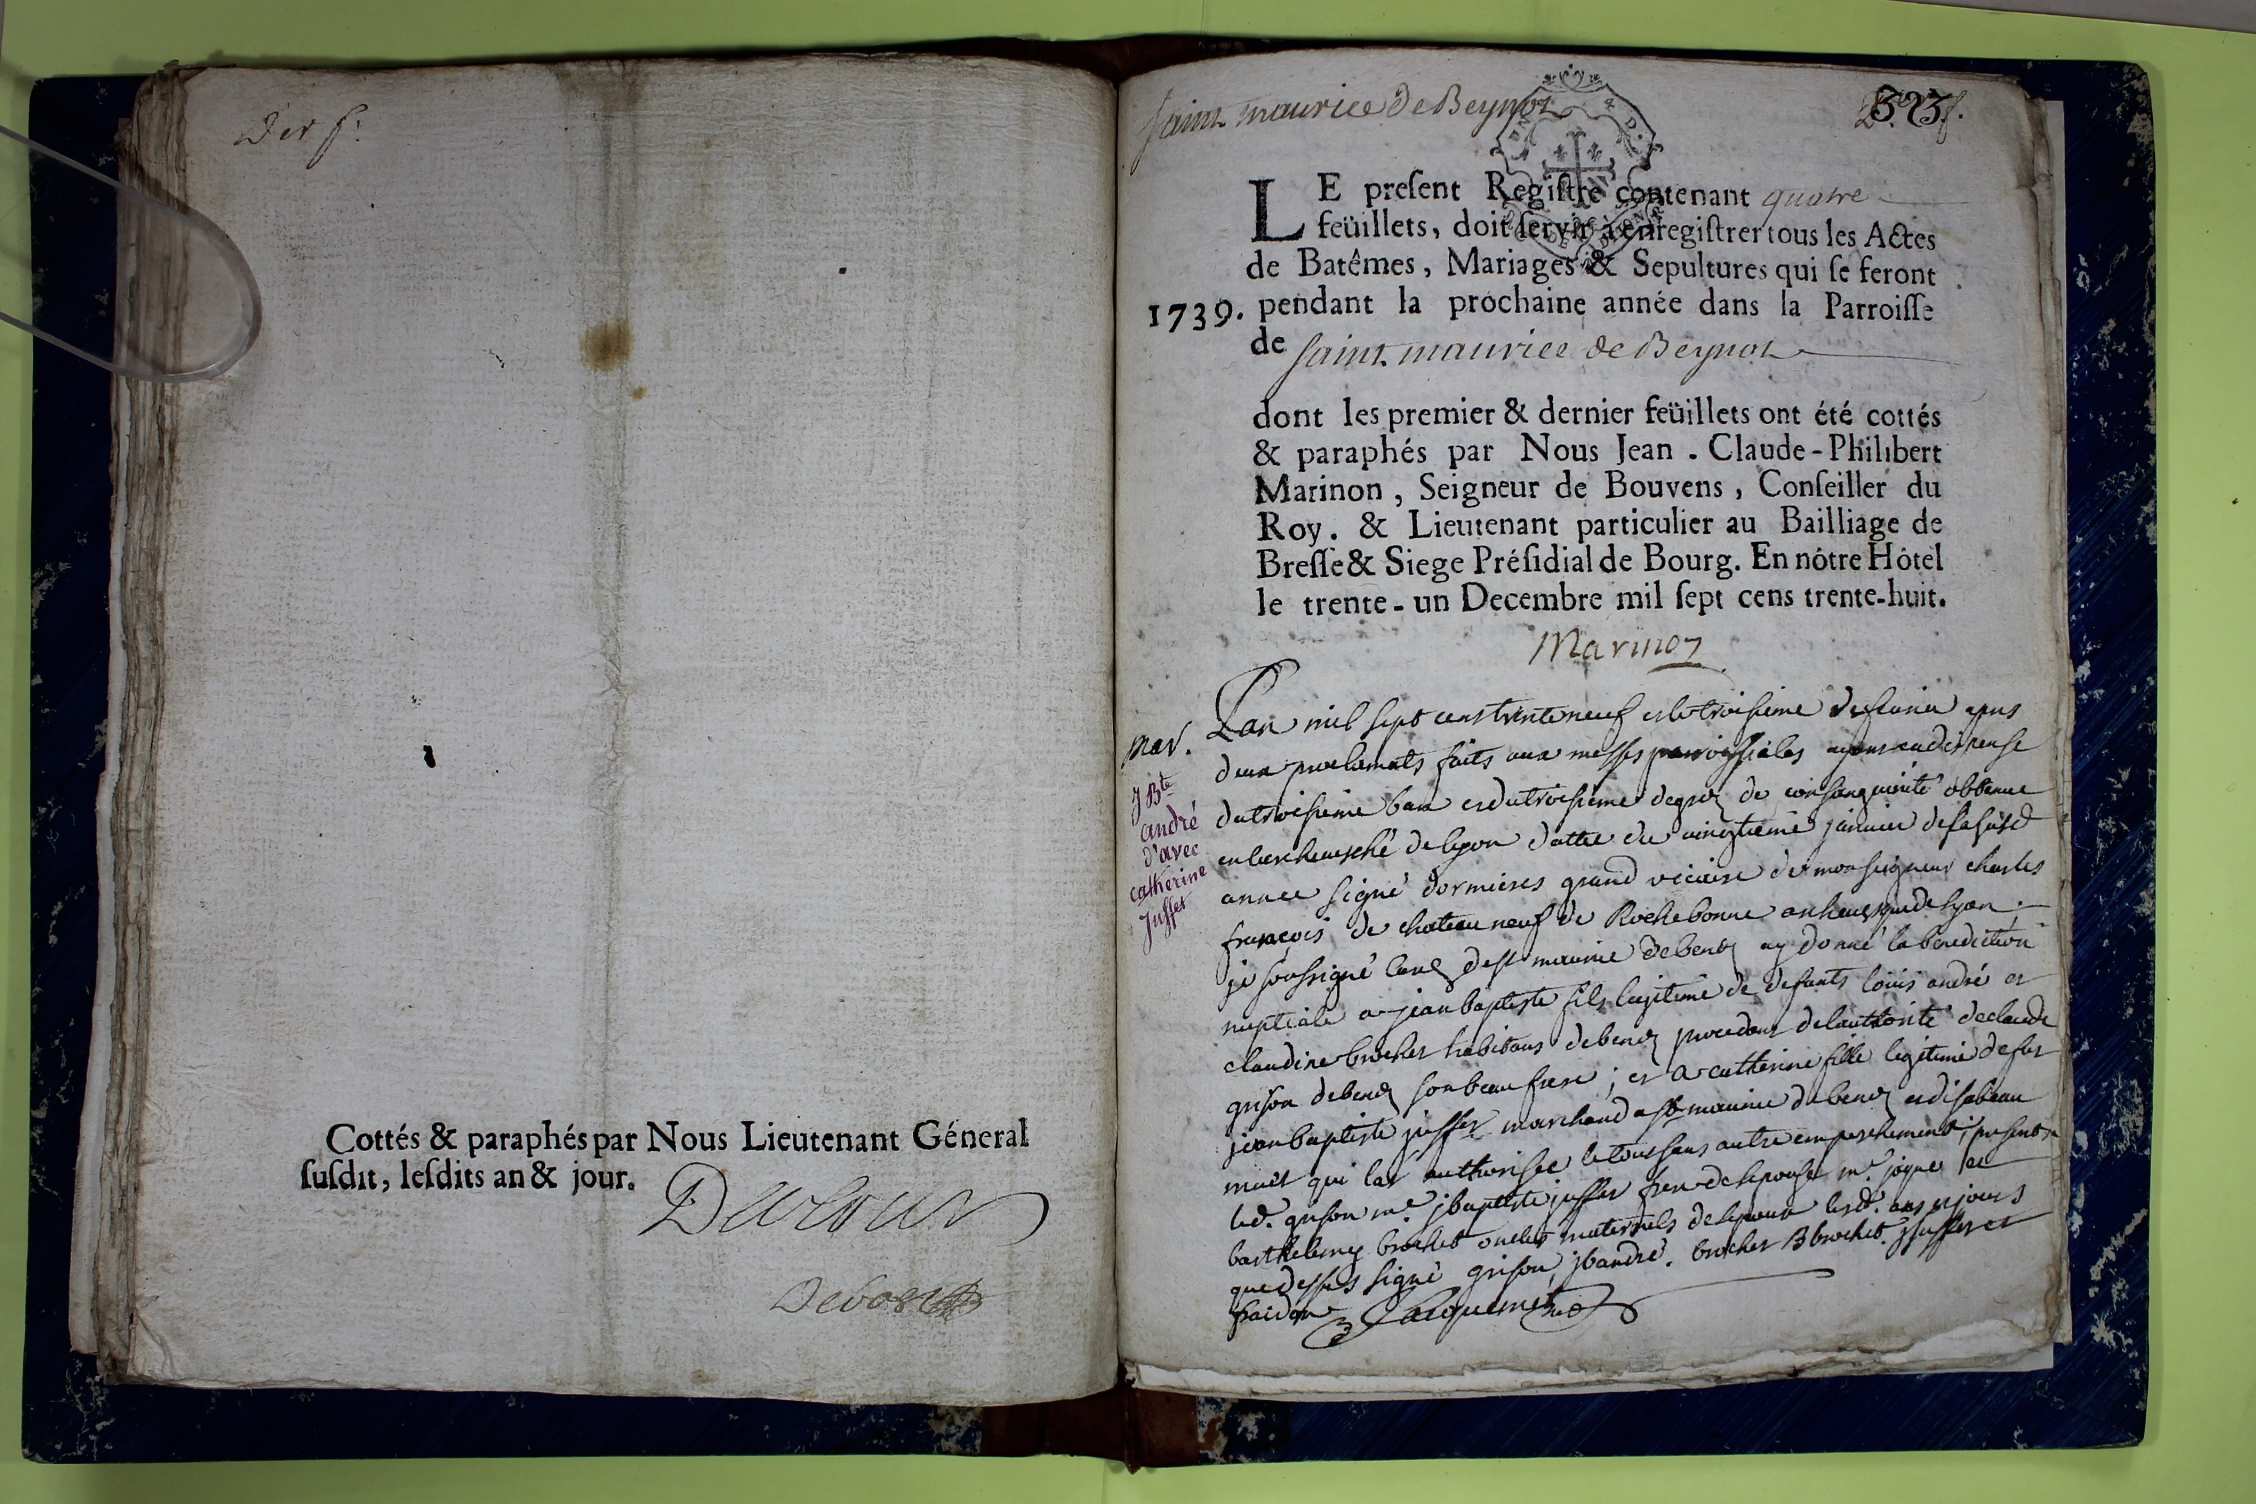 Der f.
Cottés & paraphés par Nous Lieutenant Géneral
ſuſdit, leſdits an & jour.
Saint maurice de Beynoz
323.
LE preſent Regiſtre contenant quatre
feüillets, doit ſervir à enregiſtrer tous les Actes
de Batêmes, Mariages & Sepultures qui ſe feront
1739. pendant la prochaine année dans la Parroiſſe
de Saint maurice de Beynoz
dont les premier & dernier feüillets ont été cottés
& paraphés par Nous Jean. Claude-Philibert
Marinon, Seigneur de Bouvens, Conſeiller du
Roy. & Lieutenant particulier au Bailliage de
Breſſe & Siege Préſidial de Bourg. En nôtre Hôtel
le trente-un Decembre mil ſept cens trente-huit.
Marinon
mar.
J Bte
andré
d'avec
catherine
Juffet
L'an mil sept cens trente neuf et le troisieme de feurier apres
deux proclamats faits aux messes parroissiales ayant eu dispense
du troisieme ban et du troisieme degrez de consanguinité obtenue
en l'archeuesché de lyon dattée du vingtieme januier de la susd
annee signé dormieres grand vicaire de monseigneur charles
françois de chateauneuf de Rochebonne archeuesque de lyon.
je soussigné curé de st maurice de benoz ay donné la benediction
nuptiale a jean baptiste fils legitime de defunts loüis andré et
claudine brochet habitans de benoz procedant de l'authorité de claude
grison de benoz son beau frere; et a catherine fille legitime de feu
jean baptiste juffet marchand a st maurice de benoz et d'isabeau
muet qui l'at authorisée le tout sans autre empeschement, presents
led. grison me. jbaptiste juffet frere de lepouse me. joque et
barthelemy brochet oncles maternels de lepoux lesd. ans et jours
que dessus signé grison, jbandré. brochet B brochet. juffet et
Jacquemet